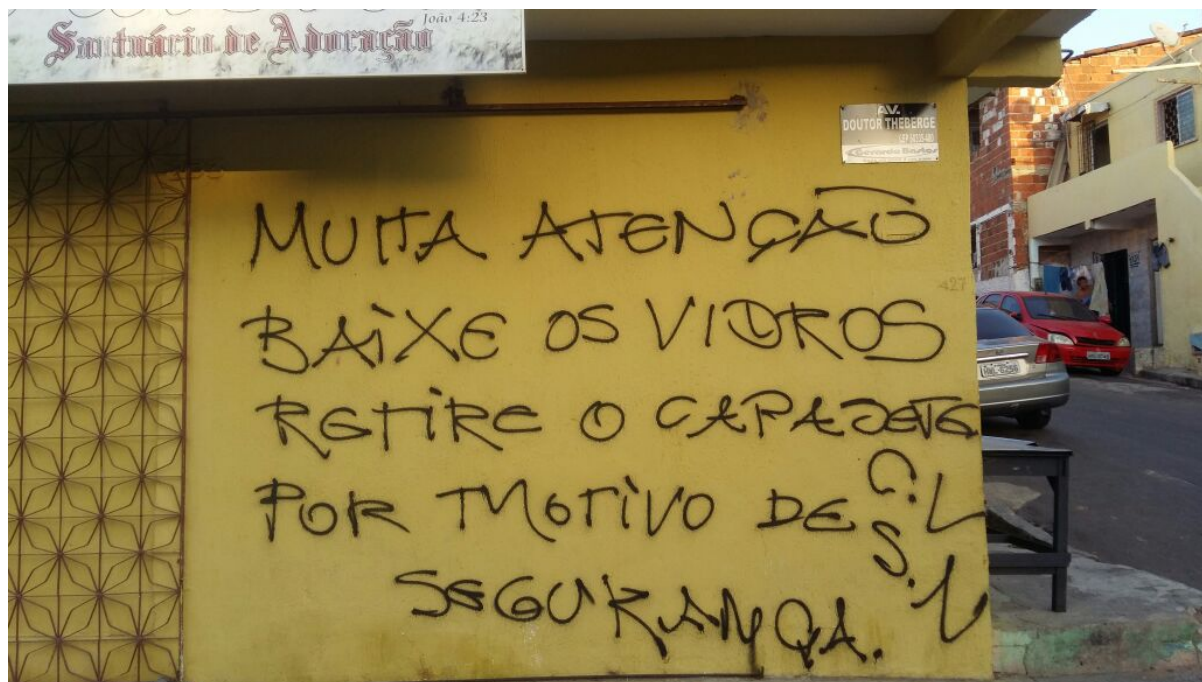 João 4:23
Santuário de Adoração
AV.
DOUTOR THEBERGE
Gerardo Bastos
427
MUITA ATENÇÃO
BAIXE OS VIDROS
RETIRE O CAPACETE
POR MOTIVO DE
SEGURANÇA.